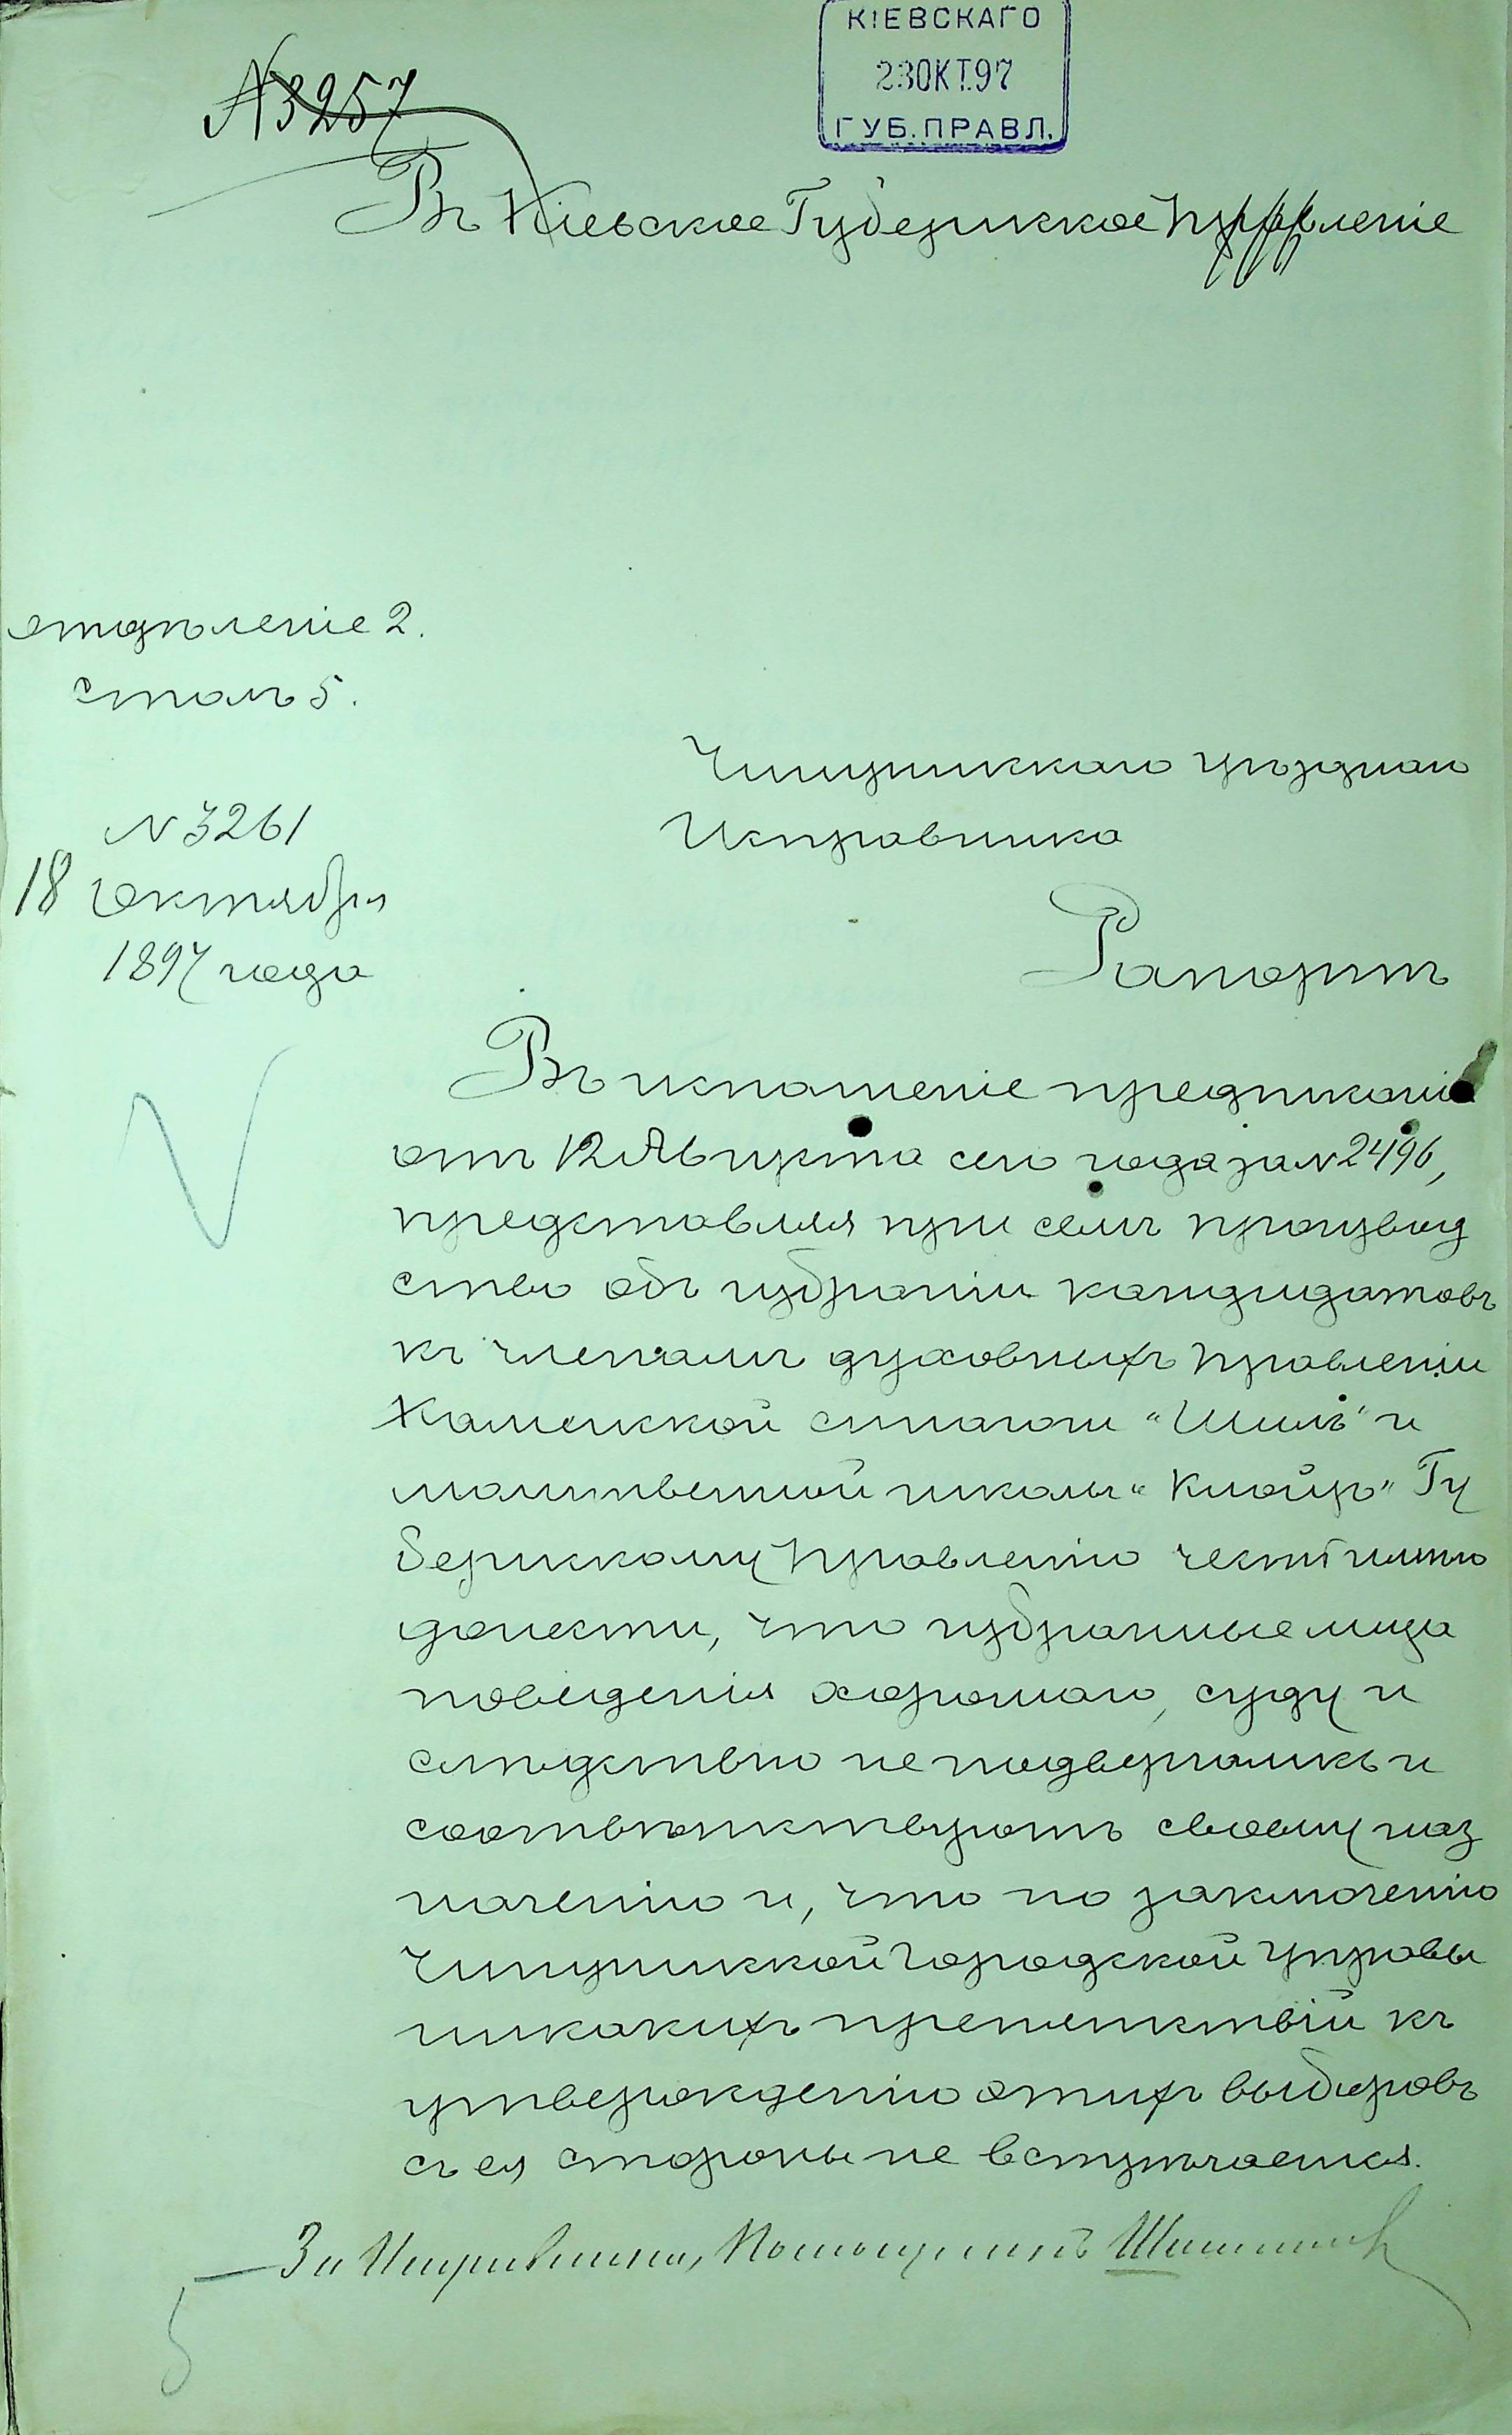 КІЕВСКАГО
23 ОКТ. 97
ГУБ. ПРАВЛ.
N 3257
Въ Кіевское Губернское Правленіе
отдѣленіе 2.
столъ 5.
Чигиринскаго уѣзднаго
Исправника
N 3261
18 Октября
1897 года
Рапортъ
Въ исполненіе предписанія
отъ 12 Августа сего года за N 2496,
представляя при семъ производ
ство объ избраніи кандидатовъ
къ членамъ духовныхъ правленій
Каменской синагоги "
молитвенной школы "
" Гу
бернскому Правленію честь имѣю
донести, что избранные лица
поведенія хорошаго, суду и
слѣдствію не подвергались и
соотвѣтствуютъ своему наз
наченію и, что по заключенію
Чигиринской Городской Управы
никакихъ препятствій къ
утвержденію этихъ выборовъ
съ ея стороны не встрѣчается.
За Исправника, Помощникъ